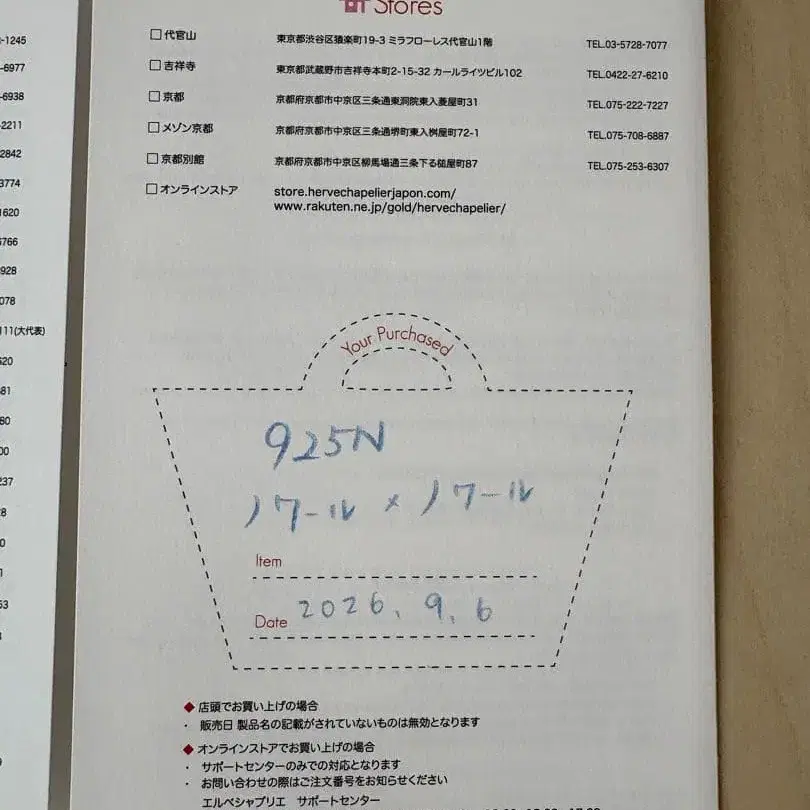 -1245
-6977
-6938
-2211
2842
3774
1620
6766
928
078
111(大代表)
620
81
80
00
237
8
0
1
53
Stores
□代官山 東京都渋谷区猿楽町19-3 ミラフローレス代官山1階 TEL.03-5728-7077
□吉祥寺 東京都武蔵野市吉祥寺本町2-15-32 カールライツビル102 TEL.0422-27-6210
□京都 京都府京都市中京区三条通東洞院東入菱屋町31 TEL.075-222-7227
□メゾン京都 京都府京都市中京区三条通堺町東入桝屋町72-1 TEL.075-708-6887
□京都別館 京都府京都市中京区柳馬場通三条下る槌屋町87 TEL.075-253-6307
□オンラインストア store.hervechapelierjapon.com/
www.rakuten.ne.jp/gold/hervechapelier/
Your Purchased
925N
ノワール×ノワール
Item
Date 2026.9.6
◆店頭でお買い上げの場合
・ 販売日 製品名の記載がされていないものは無効となります
◆オンラインストアでお買い上げの場合
・ サポートセンターのみでの対応となります
・ お問い合わせの際はご注文番号をお知らせください
エルベシャプリエ サポートセンター